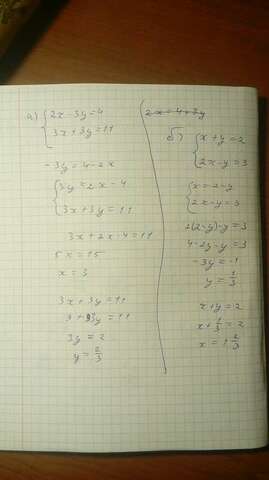 а) { 2x - 3y = 4
3x + 3y = 11
-3y = 4 - 2x
{ 3y = 2x - 4
3x + 3y = 11
3x + 2x - 4 = 11
5x = 15
x = 3
3x + 3y = 11
9 + 3y = 11
3y = 2
y = 2/3
{ 2x = 4 + 3y
б) { x + y = 2
2x - y = 3
{ x = 2 - y
2x - y = 3
2(2 - y) - y = 3
4 - 2y - y = 3
-3y = -1
y = 1/3
x + y = 2
x + 1/3 = 2
x = 1 2/3